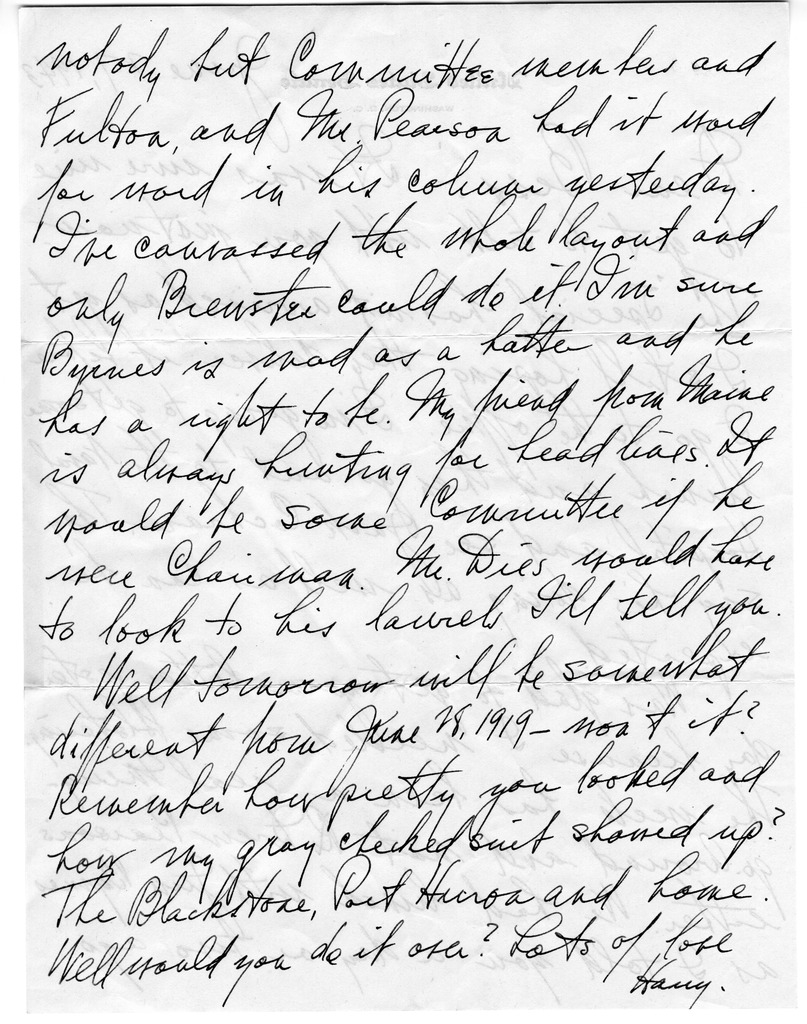 nobody but Committee members and
Fulton, and Mr. Pearson had it word
for word in his column yesterday.
I've canvassed the whole layout and
only Brewster could do it. I'm sure
Byrnes is mad as a hatter and he
has a right to be. My friend from Maine
is always hunting for head lines. It
would be some Committee if he
were Chairman. Mr. Dies would have
to look to his laurels I'll tell you.
Well tomorrow will be somewhat
different from June 28, 1919 – won't it?
Remember how pretty you looked and
how my gray checked suit showed up?
The Blackstone, Port Huron and home.
Well would you do it over? Lots of love
Harry.